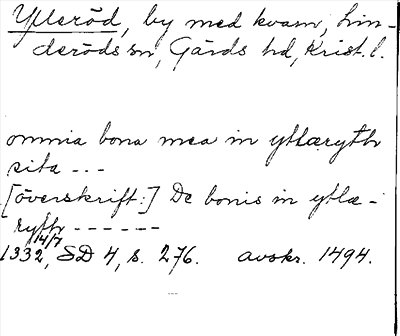 Ylleröd, by med kvarn, Lin-
deröds sn, Gärds hd, Krist. l.
omnia bona mea in yllæryth
sita ---
[överskrift:] De bonis in yllæ-
ryth ------
1332 14/7, SD 4, s. 276. avskr. 1494.